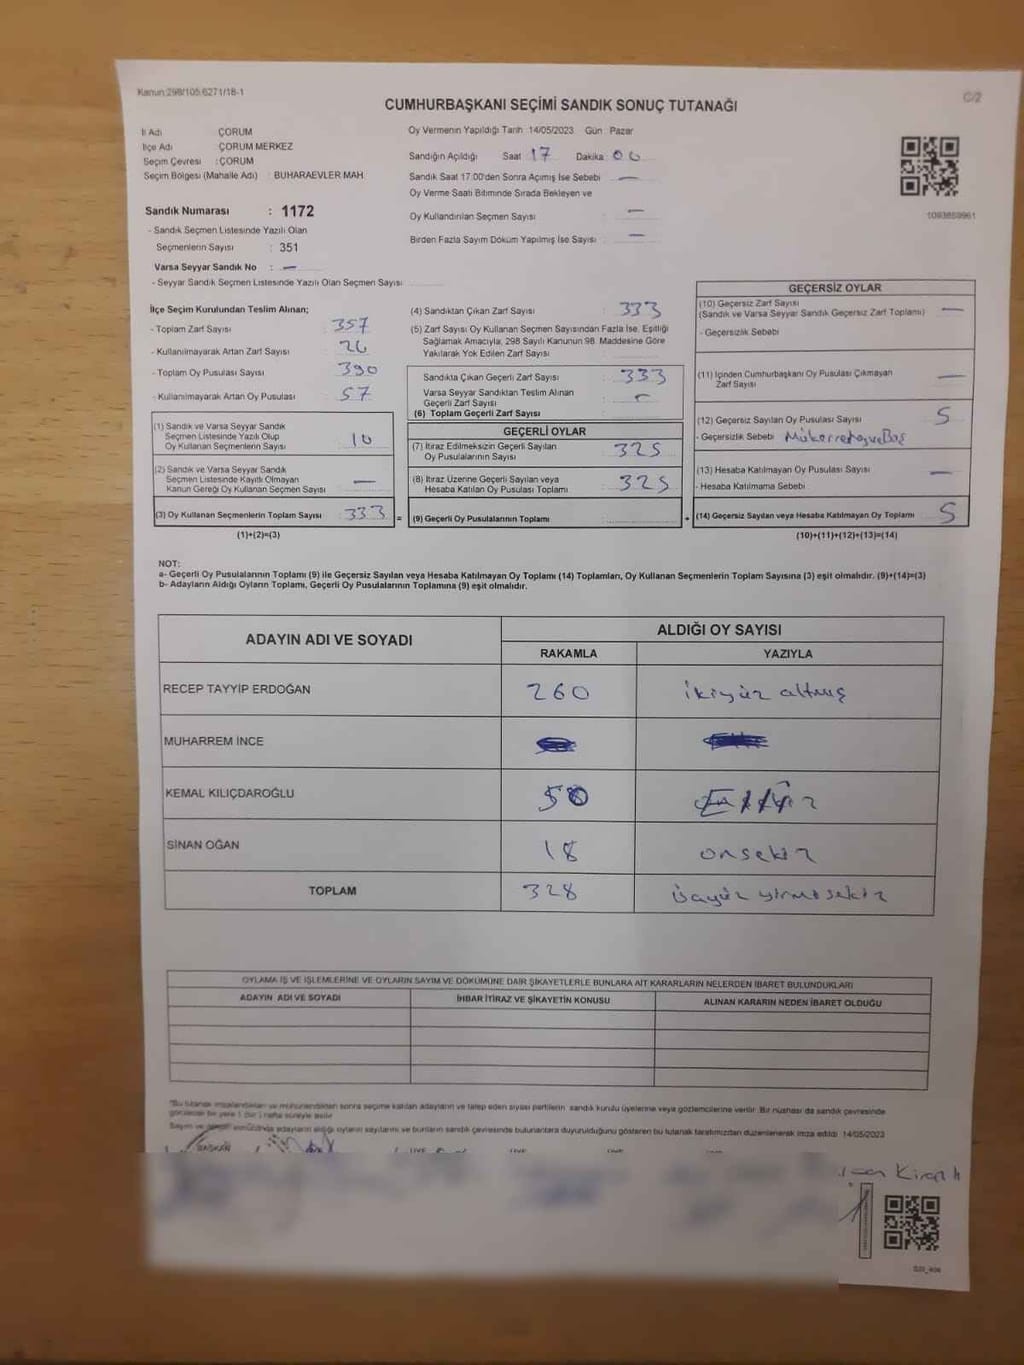 Kanun:298/105,6271/18-1
C/2
CUMHURBAŞKANI SEÇİMİ SANDIK SONUÇ TUTANAĞI
İl Adı ÇORUM
İlçe Adı ÇORUM MERKEZ
Seçim Çevresi : ÇORUM
Seçim Bölgesi (Mahalle Adı) : BUHARAEVLER MAH.
Oy Vermenin Yapıldığı Tarih :14/05/2023 Gün : Pazar
Sandığın Açıldığı Saat : 17 Dakika : 00
Sandık Saat 17:00'den Sonra Açımış İse Sebebi —
Oy Verme Saati Bitiminde Sırada Bekleyen ve
Oy Kullandırılan Seçmen Sayısı : —
Birden Fazla Sayım Döküm Yapılmış İse Sayısı : —
1093859961
Sandık Numarası : 1172
- Sandık Seçmen Listesinde Yazılı Olan
Seçmenlerin Sayısı : 351
Varsa Seyyar Sandık No : —
- Seyyar Sandık Seçmen Listesinde Yazılı Olan Seçmen Sayısı
İlçe Seçim Kurulundan Teslim Alınan;
- Toplam Zarf Sayısı : 357
- Kullanılmayarak Artan Zarf Sayısı :
- Toplam Oy Pusulası Sayısı : 390
- Kullanılmayarak Artan Oy Pusulası : 57
(1) Sandık ve Varsa Seyyar Sandık
Seçmen Listesinde Yazılı Olup
Oy Kullanan Seçmenlerin Sayısı : 10
(2) Sandık ve Varsa Seyyar Sandık
Seçmen Listesinde Kayıtlı Olmayan
Kanun Gereği Oy Kullanan Seçmen Sayısı : —
(3) Oy Kullanan Seçmenlerin Toplam Sayısı : 333
(1)+(2)=(3)
(4) Sandıktan Çıkan Zarf Sayısı : 333
(5) Zarf Sayısı Oy Kullanan Seçmen Sayısından Fazla İse, Eşitliği
Sağlamak Amacıyla, 298 Sayılı Kanunun 98. Maddesine Göre
Yakılarak Yok Edilen Zarf Sayısı :
Sandıkta Çıkan Geçerli Zarf Sayısı : 333
Varsa Seyyar Sandıktan Teslim Alınan
Geçerli Zarf Sayısı :
(6) Toplam Geçerli Zarf Sayısı :
GEÇERLİ OYLAR
(7) İtiraz Edilmeksizin Geçerli Sayılan
Oy Pusulalarının Sayısı : 325
(8) İtiraz Üzerine Geçerli Sayılan veya
Hesaba Katılan Oy Pusulası Toplamı : 325
= (9) Geçerli Oy Pusulalarının Toplamı :
+
GEÇERSİZ OYLAR
(10) Geçersiz Zarf Sayısı
(Sandık ve Varsa Seyyar Sandık Geçersiz Zarf Toplamı) : —
- Geçersizlik Sebebi
(11) İçinden Cumhurbaşkanı Oy Pusulası Çıkmayan
Zarf Sayısı : —
(12) Geçersiz Sayılan Oy Pusulası Sayısı : 5
- Geçersizlik Sebebi
(13) Hesaba Katılmayan Oy Pusulası Sayısı : —
- Hesaba Katılmama Sebebi
(14) Geçersiz Sayılan veya Hesaba Katılmayan Oy Toplamı : 5
(10)+(11)+(12)+(13)=(14)
NOT:
a- Geçerli Oy Pusulalarının Toplamı (9) ile Geçersiz Sayılan veya Hesaba Katılmayan Oy Toplamı (14) Toplamları, Oy Kullanan Seçmenlerin Toplam Sayısına (3) eşit olmalıdır. (9)+(14)=(3)
b- Adayların Aldığı Oyların Toplamı, Geçerli Oy Pusulalarının Toplamına (9) eşit olmalıdır.
ADAYIN ADI VE SOYADI ALDIĞI OY SAYISI
RAKAMLA YAZIYLA
RECEP TAYYİP ERDOĞAN 260 ikiyüz altmış
MUHARREM İNCE
KEMAL KILIÇDAROĞLU 50
SİNAN OĞAN 18 onsekiz
TOPLAM 328 üçyüz yirmi sekiz
OYLAMA İŞ VE İŞLEMLERİNE VE OYLARIN SAYIM VE DÖKÜMÜNE DAİR ŞİKAYETLERLE BUNLARA AİT KARARLARIN NELERDEN İBARET BULUNDUKLARI
ADAYIN ADI VE SOYADI İHBAR İTİRAZ VE ŞİKAYETİN KONUSU ALINAN KARARIN NEDEN İBARET OLDUĞU
"Bu tutanak imzalandıktan ve mühürlendikten sonra seçime katılan adayların ve talep eden siyasi partilerin sandık kurulu üyelerine veya gözlemcilerine verilir. Bir nüshası da sandık çevresinde
görülecek bir yere 1 (bir) hafta süreyle asılır.
adayların aldığı oyların sayılarını ve bunların sandık çevresinde bulunanlara duyurulduğunu gösteren bu tutanak tarafımızdan düzenlenerek imza edildi. 14/05/2023
BAŞKAN